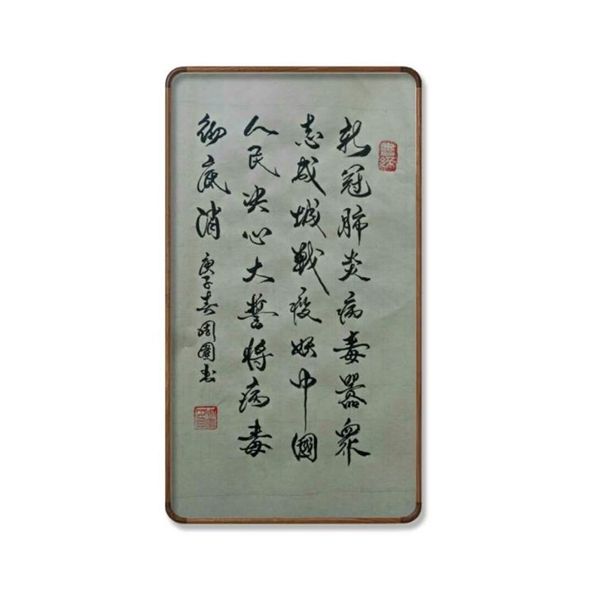 新冠肺炎病毒嚣眾
志成城戰疫妖中國
人民决心大誓将病毒
彻底消
庚子春周園书